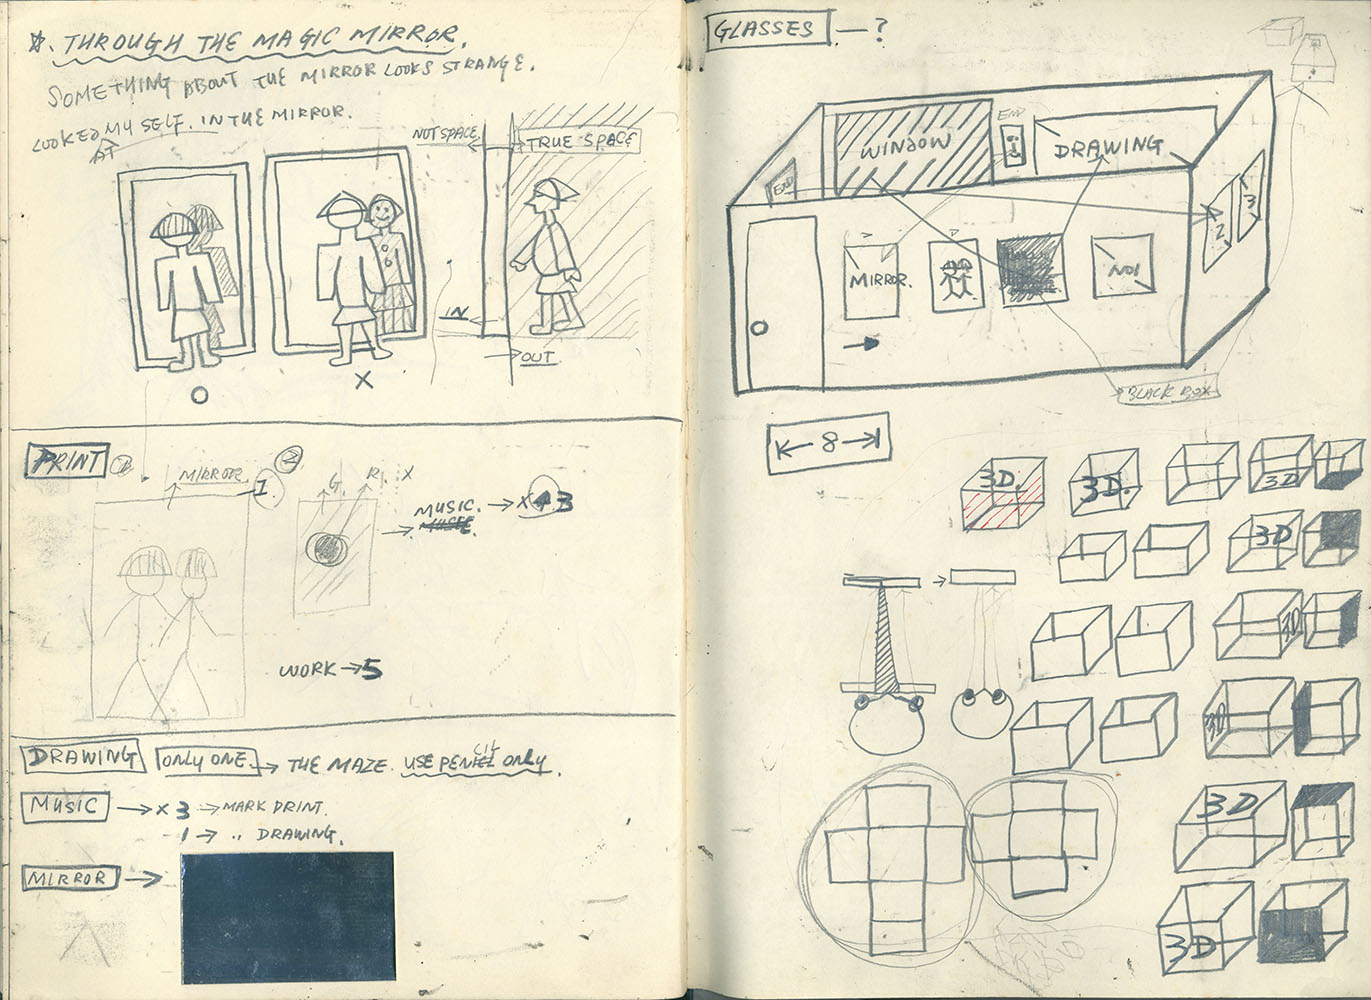 THROUGH THE MAGIC MIRROR.
SOMETHING ABOUT THE MIRROR LOOKS STRANGE.
LOOKED MY SELF. IN THE MIRROR.
AT
NOT SPACE.
TRUE SPACE
IN
OUT
O
X
PRINT
MIRROR
1.
2
G. R. X
MUSIC. → X 3
WORK → 5
DRAWING ONLY ONE. → THE MAZE. USE PENCIL ONLY.
MUSIC → X 3 → MARK PRINT.
1 → " DRAWING.
MIRROR →
GLASSES — ?
END
WINDOW
END
DRAWING
3
2
MIRROR.
NO1
BLACK BOX
8
3D.
3D.
3D
3D
3D
3D
3D
3D